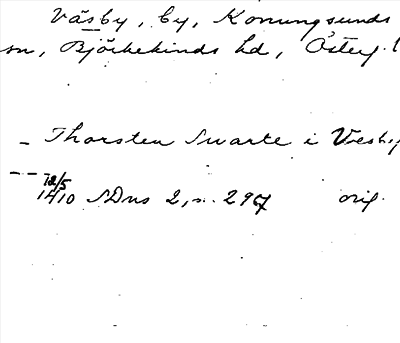 Väsby, by, Konungsunds
sn, Björkekinds hd, Österg.
- Thorsten Swarte i Væsby
-- 12/5
1410 SDns 2, s. 297 orig.